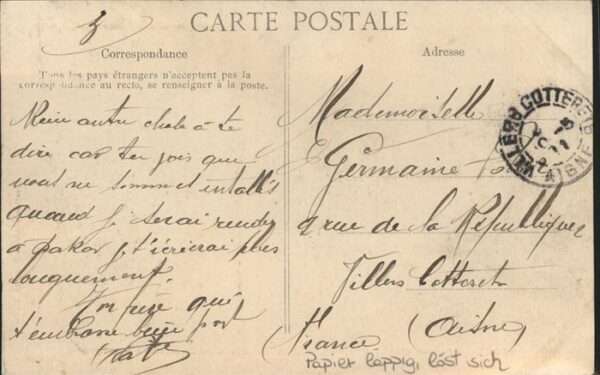 CARTE POSTALE
Correspondance
Adresse
Tous les pays étrangers n'acceptent pas la
correspondance au recto, se renseigner à la poste.
Rein autre chose à te
dire car tu vois que
nous ne sommes
quand je serai rendu
à Dakar je t'écrirai plus
longuement.
Ton qui
t'embrasse bien fort
Mademoiselle
Germaine
rue de la République
Villers Cotterets
(Aisne)
France
VILLERS COTTERETS
AISNE
Papier lappig, löst sich